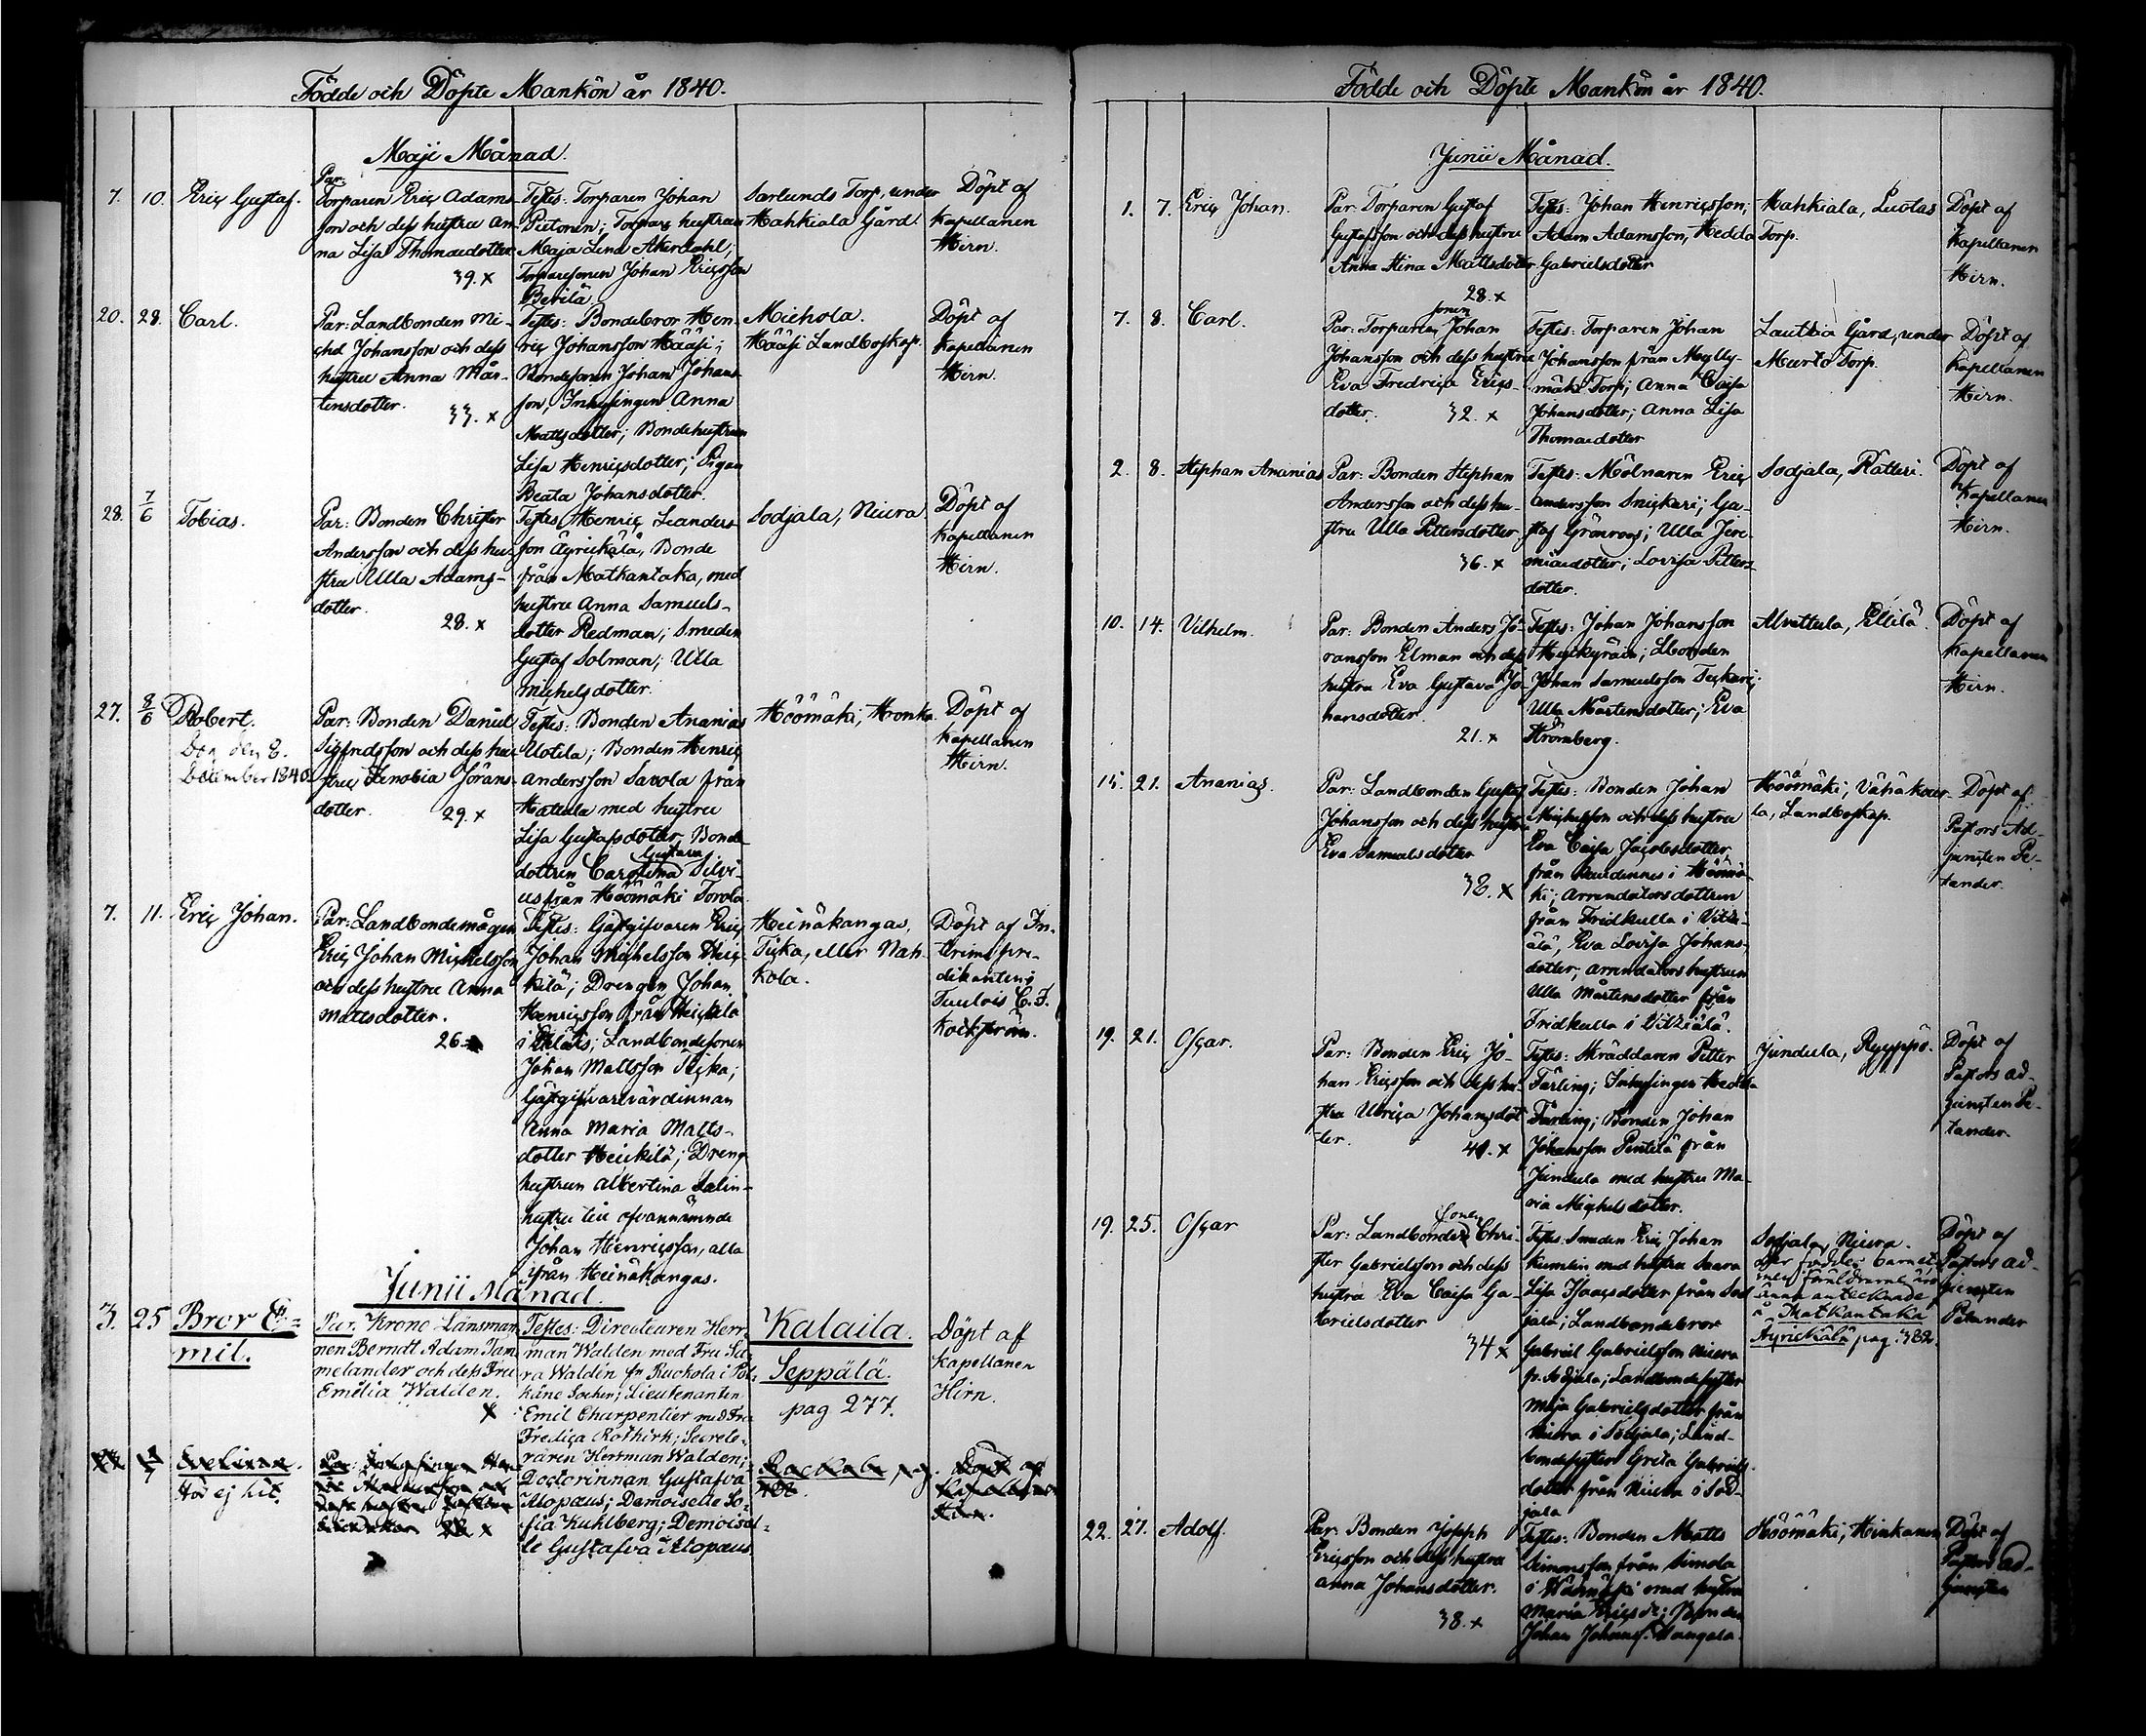 Födde och Döpte Mankön år 1840.
Maji Månad.
7. 10. Eric Gustaf.
Par:
Torparen Eric Adams-
son och dess hustru An-
na Lisa Thomaedotter
39. x
Testes: Torparen Johan
Maja Lena Åkerdahl;
Torparesonen Johan Ericsson
Torp, under
Mahkiala Gård.
Döpt af
Kapellanen
Hirn.
20. 28. Carl.
Par: Landbonden Mi-
chel Johansson och dess
hustru Anna Mår-
tensdotter.
33. x
Testes: Bondebror Hen-
ric Johansson Määsi;
Bondesonen Johan Johans-
son, Inhysingen Anna
Mattsdotter; Bondehustrun
Lisa Henricsdotter; Pigan
Beata Johansdotter.
Miehola.
Määsi Landboskap.
Döpt af
Kapellanen
Hirn.
28. 7/6 Tobias.
Par: Bonden Christer
Andersson och dess hu-
stru Ulla Adams-
dotter.
28. x
Testes Henric Leanders-
son Äyriekälä, Bonde
från Matkantaka, med
hustru Anna Samuels-
dotter Redman; Smeden
Gustaf Solman; Ulla
Michelsdotter.
Sodjala, Niura
Döpt af
Kapellanen
Hirn.
27. 8/6 Robert.
Dog den 8.
December 1840.
Par: Bonden Daniel
Sigfridsson och dess hu-
stru Zenobia Jörans-
dotter.
29. x
Testes: Bonden Ananias
Uotila; Bonden Henric
Andersson Savola från
Hattula med hustru
Lisa Gustafsdotter, Bonde-
Gustava
dottren Carolina Silvi-
us från Höömäki Torola
Höömäki, Hronka.
Döpt af
Kapellanen
Hirn.
7. 11. Eric Johan.
Par: Landbondemågen
Eric Johan Michelsson
och dess hustru Anna
Mattsdotter.
26.
Testes: Gästgifvaren Eric
Johan Michelsson Heic-
kilä; Drengen Johan
Henricsson från Heickilä
Landbondesonen
Johan Mattsson Ticka;
Gästgifvarevärdinnan
Anna Maria Matts-
dotter Heickilä; Dreng-
hustrun Albertina Salin
hustru till ofvannämnde
Johan Henricsson, alla
från Heinäkangas.
Heinäkangas,
Ticka, eller Nah-
kola.
Döpt af In-
terims pre-
dikanten i
Tulois C. F.
Kockström.
Junii Månad.
3. 25 Bror E-
mil.
Par. Krono-Länsman-
nen Berndt Adam Tam-
melander och dess Fru
Emelia Walden.
x
Testes: Directeuren Herr-
man Walden med Fru Sa-
ra Walden fr Ruokola i Päl-
käne Socken; Lieutenanten
Emil Charpentier med Fru
Fredica Rothkirk; Secrete-
raren Herrman Walden;
Doctorinnan Gustafva
Alopæus; Demoiselle So-
fia Kuhlberg; Demoisel-
le Gustafva Alopæus.
Kalaila.
Seppälä.
pag 277.
Döpt af
Kapellanen
Hirn.
Evelina.
Hör ej hit.
Födde och Döpte Mankön år 1840.
Junii Månad.
1. 7. Eric Johan.
Par: Torparen Gustaf
Gustafsson och dess hustru
Anna Stina Mattsdotter
28. x
Testes: Johan Henricsson;
Adam Adamsson, Hedda
Gabrielsdotter
Mahkiala, Luolas
Torp.
Döpt af
Kapellanen
Hirn.
7. 8. Carl.
sonen
Par: Torparen Johan
Johansson och dess hustru
Eva Fredrica Erics-
dotter.
32. x
Testes: Torparen Johan
Johansson från Mylly-
mäki Torp; Anna Caisa
Johansdotter; Anna Lisa
Thomaedotter
Lautsia Gård, under
Murto Torp.
Döpt af
Kapellanen
Hirn.
2. 8. Stephan Ananias
Par: Bonden Stephan
Andersson och dess hu-
stru Ulla Pettersdotter
36. x
Testes: Mölnaren Eric
Andersson Snickari; Gu-
staf Grönroos; Ulla Jere-
miaedotter; Lovisa Petters-
dotter.
Sodjala, Ratteri.
Döpt af
Kapellanen
Hirn.
10. 14. Vilhelm.
Par: Bonden Anders Jö-
ransson Elman och dess
hustru Eva Gustava Jo-
hansdotter.
21. x
Testes: Johan Johansson
Johan Samuelsson
Ulla Mårtensdotter; Eva
Strömberg.
Alvettula, Ellilä.
Döpt af
Kapellanen
Hirn.
15. 21. Ananias.
Par: Landbonden Gustaf
Johansson och dess hustru
Eva Samuelsdotter
38. x
Testes: Bonden Johan
Michelsson och dess hustru
Eva Caisa Jacobsdotter
från Raudinnes i Höömä-
ki; Arrendatorsdottern
från Fridkulla i Vitzi-
älä, Eva Lovisa Johans-
dotter; Arrendators hustrun
Ulla Mårtensdotter från
Fridkulla i Vitziälä.
Höömäki, Vähäkou-
la, Landboskap.
Döpt af
Pastors Ad-
juncten Pe-
tander.
19. 21. Oscar.
Par: Bonden Eric Jo-
han Ericsson och dess hu-
stru Ulrica Johansdot-
ter.
40. x
Testes: Skräddaren Petter
Färling; Inhysingen Hedda
Färling; Bonden Johan
Johansson Pentilä från
Jundula med hustru Ma-
ria Michelsdotter.
Jundula, Ryyppö.
Döpt af
Pastors ad-
juncten Pe-
tander.
19. 25. Oscar
sonen
Par: Landbonden Chri-
ster Gabrielsson och dess
hustru Eva Caisa Ga-
brielsdotter
34 x
Testes: Smeden Eric Johan
Kumlin med hustru Saara
Lisa Isaacsdotter från Sod-
jala; Landbondebror
Gabriel Gabrielsson Niura
fr. Sodjala; Landbondesyster
Maja Gabrielsdotter från
Niura i Sodjala; Land-
bondesyster Greta Gabriels-
dotter från Niura i Sod-
jala
Sodjala, Niura.
der föddes barnet
men föräldrarne äro
ännu antecknade
å Matkantaka
Äyriekälä pag. 382.
Döpt af
Pastors ad-
juncten
Petander
22. 27. Adolf.
Par: Bonden Joseph
Ericsson och dess hustru
Anna Johansdotter.
38. x
Testes: Bonden Matts
Simonsson från Simola
med hustru
Maria Erics dr; Bonden
Johan Johanss.
Höömäki, Hinkanen
Döpt af
Pastors ad-
juncten